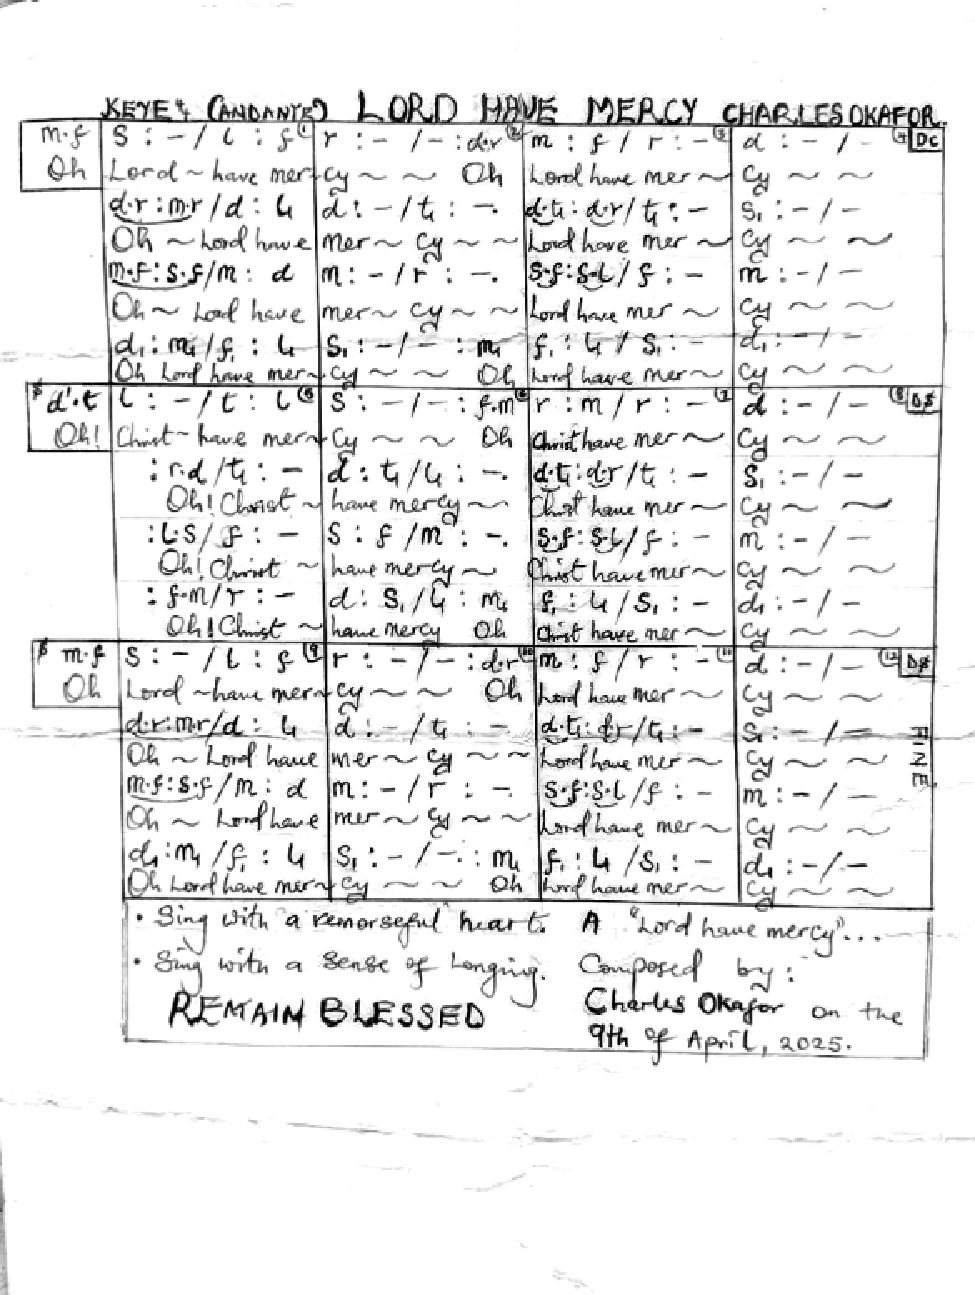 KEYE♭ (ANDANTE) LORD HAVE MERCY CHARLES OKAFOR.
m.f S : – / l : f ① r : – / – : d.r ② m : f / r : – ③ d : – / – ④ DC
Oh Lord ~ have mer ~ cy ~ ~ Oh Lord have mer ~ cy ~ ~
d.r : m.r / d : l₁ d : – / t₁ : –. d.t₁ : d.r / t₁ : – S₁ : – / –
Oh ~ Lord have mer ~ cy ~ ~ Lord have mer ~ cy ~ ~
m.f : s.f / m : d m : – / r : –. s.f : s.l / f : – m : – / –
Oh ~ Lord have mer ~ cy ~ ~ Lord have mer ~ cy ~ ~
d₁ : m₁ / f₁ : l₁ S₁ : – / – : m₁ f₁ : l₁ / S₁ : – d₁ : – / –
Oh Lord have mer ~ cy ~ ~ Oh Lord have mer ~ cy ~ ~
$ d'.t l : – / t : l ⑤ S : – / – : f.m ⑥ r : m / r : – ⑦ d : – / – ⑧ D$
Oh! Christ ~ have mer ~ cy ~ ~ Oh Christ have mer ~ cy ~ ~
: r.d / t₁ : – d : t₁ / l₁ : –. d.t₁ : d.r / t₁ : – S₁ : – / –
Oh! Christ ~ have mercy ~ ~ Christ have mer ~ cy ~ ~
: l.S / f : – S : f / m : –. s.f : s.l / f : – m : – / –
Oh! Christ ~ have mercy ~ Christ have mer ~ cy ~ ~
: f.m / r : – d : S₁ / l₁ : m₁ f₁ : l₁ / S₁ : – d₁ : – / –
Oh! Christ ~ have mercy Oh Christ have mer ~ cy ~ ~
$ m.f S : – / l : f ⑨ r : – / – : d.r ⑩ m : f / r : – ⑪ d : – / – ⑫ D$
Oh Lord ~ have mer ~ cy ~ ~ Oh Lord have mer ~ cy ~ ~
d.r : m.r / d : l₁ d : – / t₁ : – d.t₁ : d.r / t₁ : – S₁ : – / –
Oh ~ Lord have mer ~ cy ~ ~ Lord have mer ~ cy ~ ~
m.f : s.f / m : d m : – / r : –. s.f : s.l / f : – m : – / –
Oh ~ Lord have mer ~ cy ~ ~ Lord have mer ~ cy ~ ~
d₁ : m₁ / f₁ : l₁ S₁ : – / –. : m₁ f₁ : l₁ / S₁ : – d₁ : – / –
Oh Lord have mer ~ cy ~ ~ Oh Lord have mer ~ cy ~ ~
FINE
• Sing with a remorseful heart. A "Lord have mercy"...
• Sing with a sense of longing. Composed by:
REMAIN BLESSED Charles Okafor on the
9th of April, 2025.